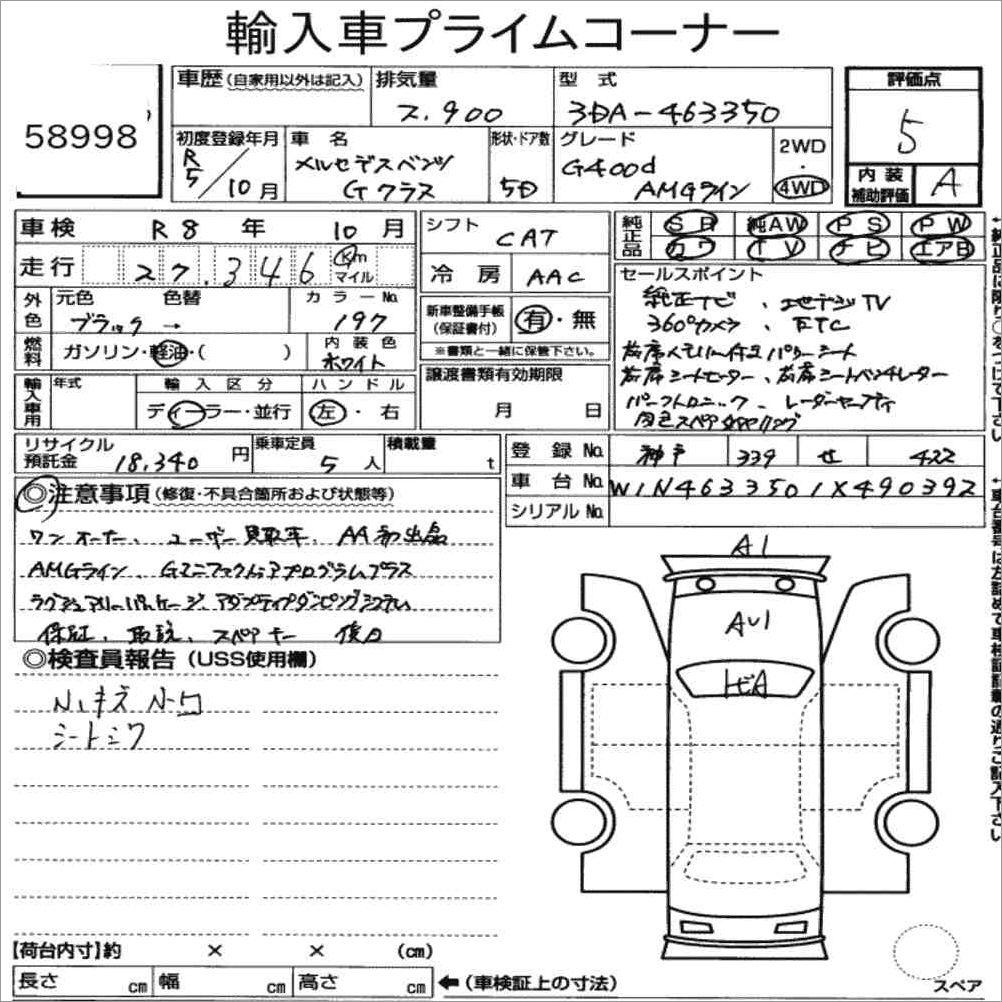 輸入車プライムコーナー
58998
車歴(自家用以外は記入) 排気量 型式 評価点
2.900 3DA-463350 5
初度登録年月 車名 形状・ドア数 グレード 2WD・4WD
R5/10月 メルセデスベンツ Gクラス 5D G400d AMGライン
内装補助評価 A
車検 R8年 10月 シフト CAT
純正品 SR 純AW PS PW
カワ TV ナビ エアB
走行 27,346 Km マイル 冷房 AAC
セールスポイント
純正ナビ、地デジTV
360°カメラ、ETC
前席メモリー付パワーシート
前席シートヒーター、前席シートベンチレーター
パークトロニック、レーダーセーフティ
外色 元色 色替 カラーNo.
ブラック → 197
新車整備手帳(保証書付) 有・無
※書類と一緒に保管下さい。
燃料 ガソリン・軽油・( ) 内装色 ホワイト
輸入車用 年式 輸入区分 ハンドル
ディーラー・並行 左・右
譲渡書類有効期限
月 日
リサイクル預託金 18,340円 乗車定員 5人 積載量 t
登録No. 神戸 339 せ 422
車台No. W1N4633501X490392
シリアルNo.
◎注意事項(修復・不具合箇所および状態等)
ワンオーナー、ユーザー買取車、AA初出品
AMGライン、Gマニファクトゥーアプログラムプラス
ラグジュアリーパッケージ、アダプティブダンピングシステム
保証、取説、スペアキー 後日
◎検査員報告(USS使用欄)
ハンキズ ハ凹
シートシワ
A1
AU1
トビA
【荷台内寸】約 × × (cm)
長さ cm 幅 cm 高さ cm ←(車検証上の寸法)
スペア